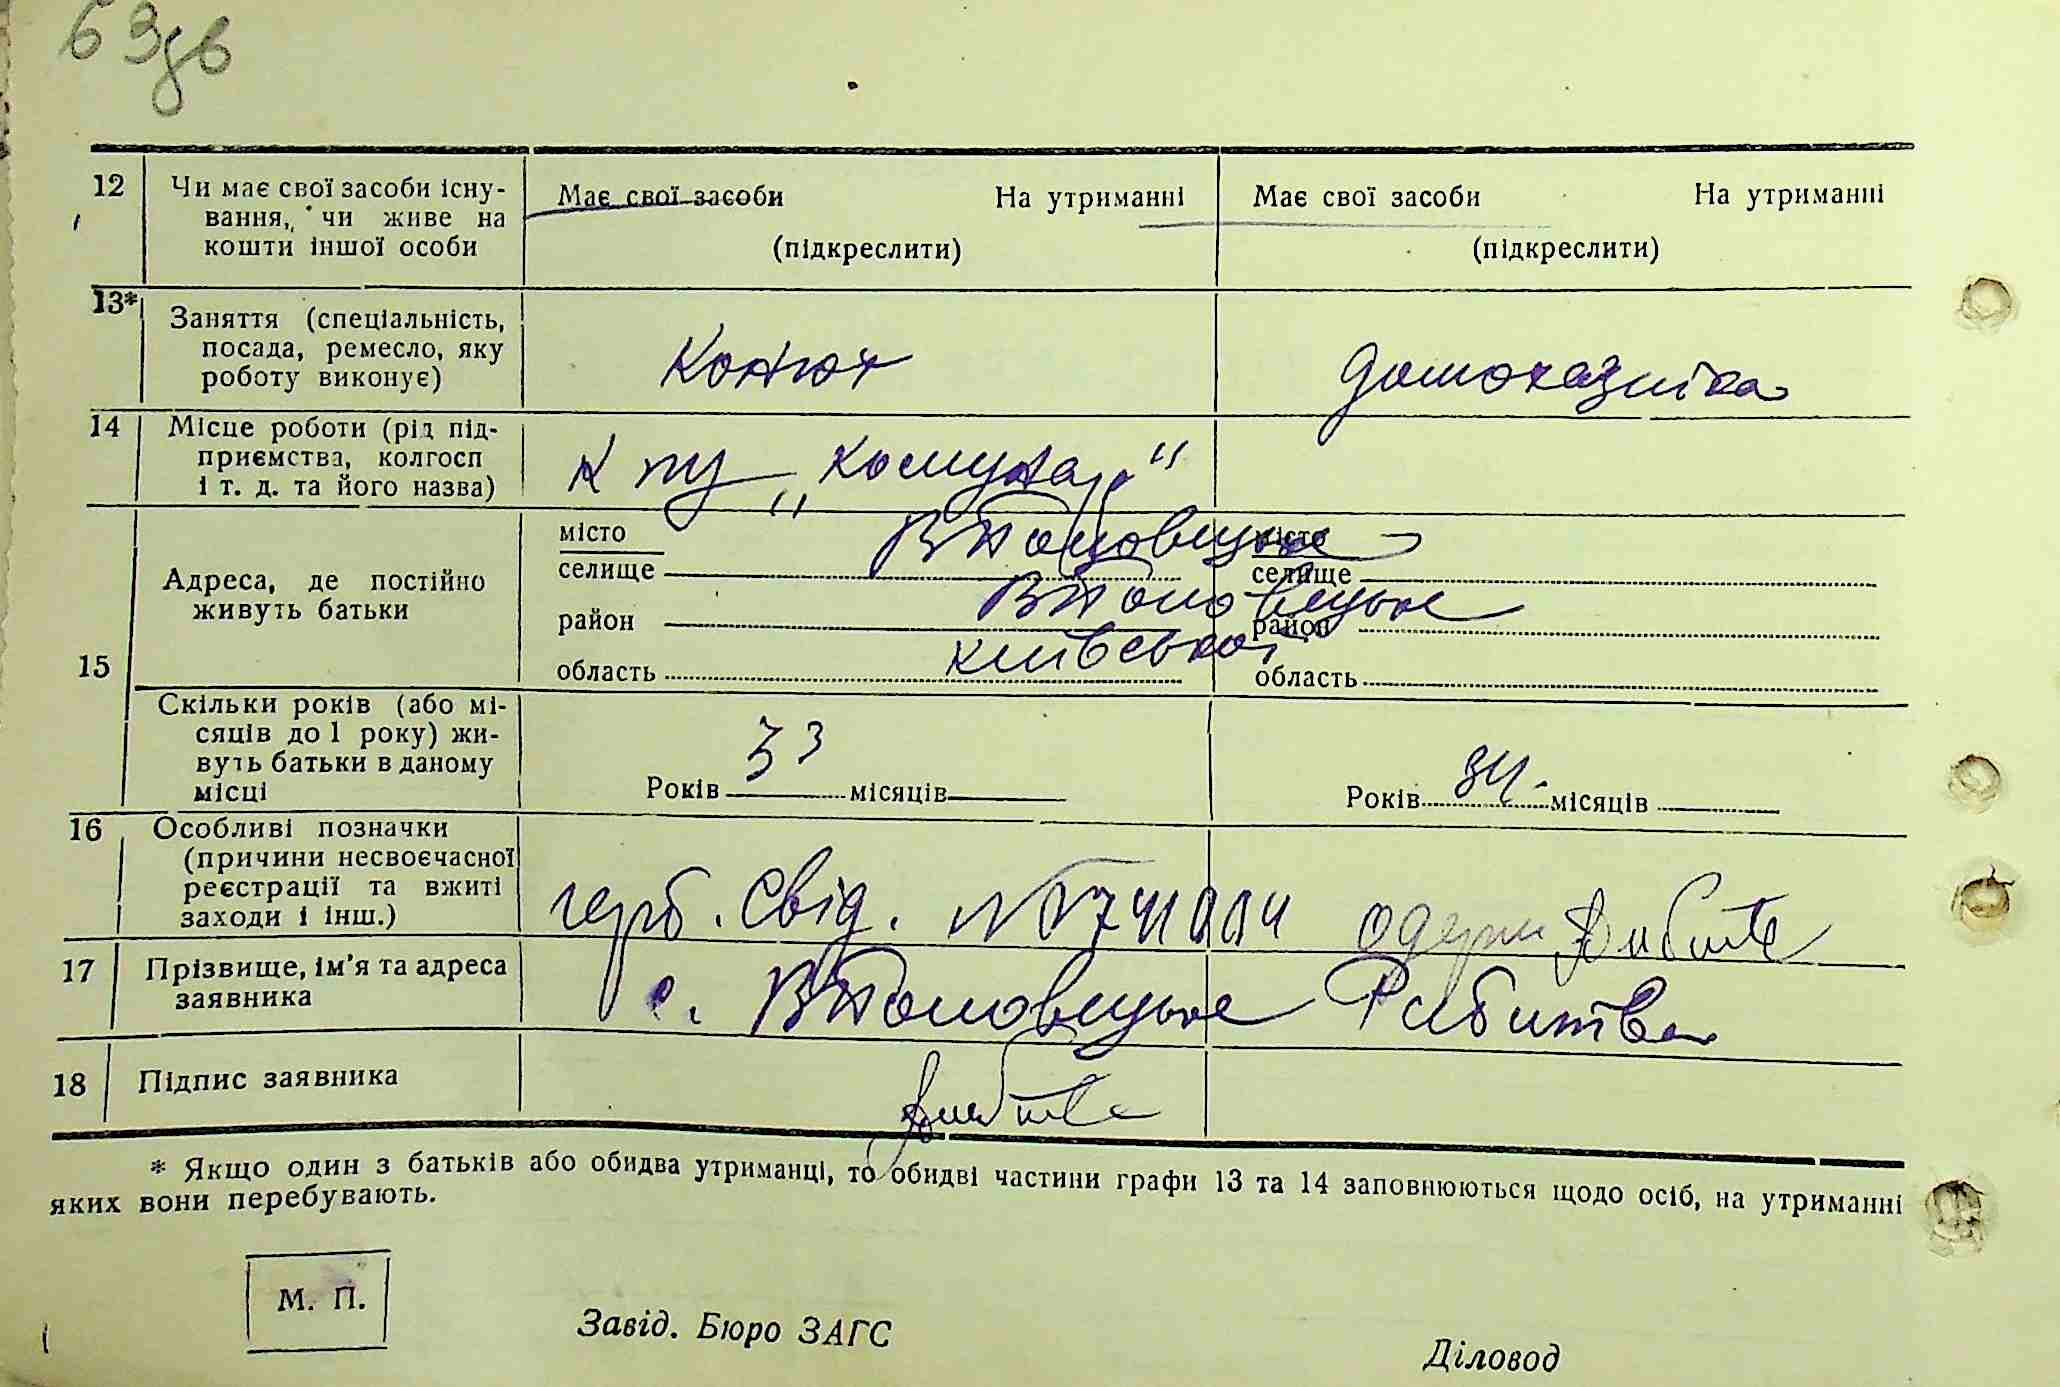 63 зв
12 Чи має свої засоби існу- Має свої засоби На утриманні Має свої засоби На утриманні
вання, чи живе на
кошти іншої особи (підкреслити) (підкреслити)
13* Заняття (спеціальність,
посада, ремесло, яку Конюх домохазяйка
роботу виконує)
14 Місце роботи (рід під-
приємства, колгосп К "Комунар"
і т. д. та його назва)
місто В Половецьке місто
Адреса, де постійно селище селище
живуть батьки В Половецьке
район район
15 Київської
область область
Скільки років (або мі-
сяців до 1 року) жи- 33 34
вуть батьки в даному
місці Років місяців Років місяців
16 Особливі позначки
(причини несвоєчасної
реєстрації та вжиті герб. Свід. №
заходи і інш.)
17 Прізвище, ім'я та адреса
заявника с. В Половецьке
18 Підпис заявника
* Якщо один з батьків або обидва утриманці, то обидві частини графи 13 та 14 заповнюються щодо осіб, на утриманні
яких вони перебувають.
М. П.
Завід. Бюро ЗАГС
Діловод